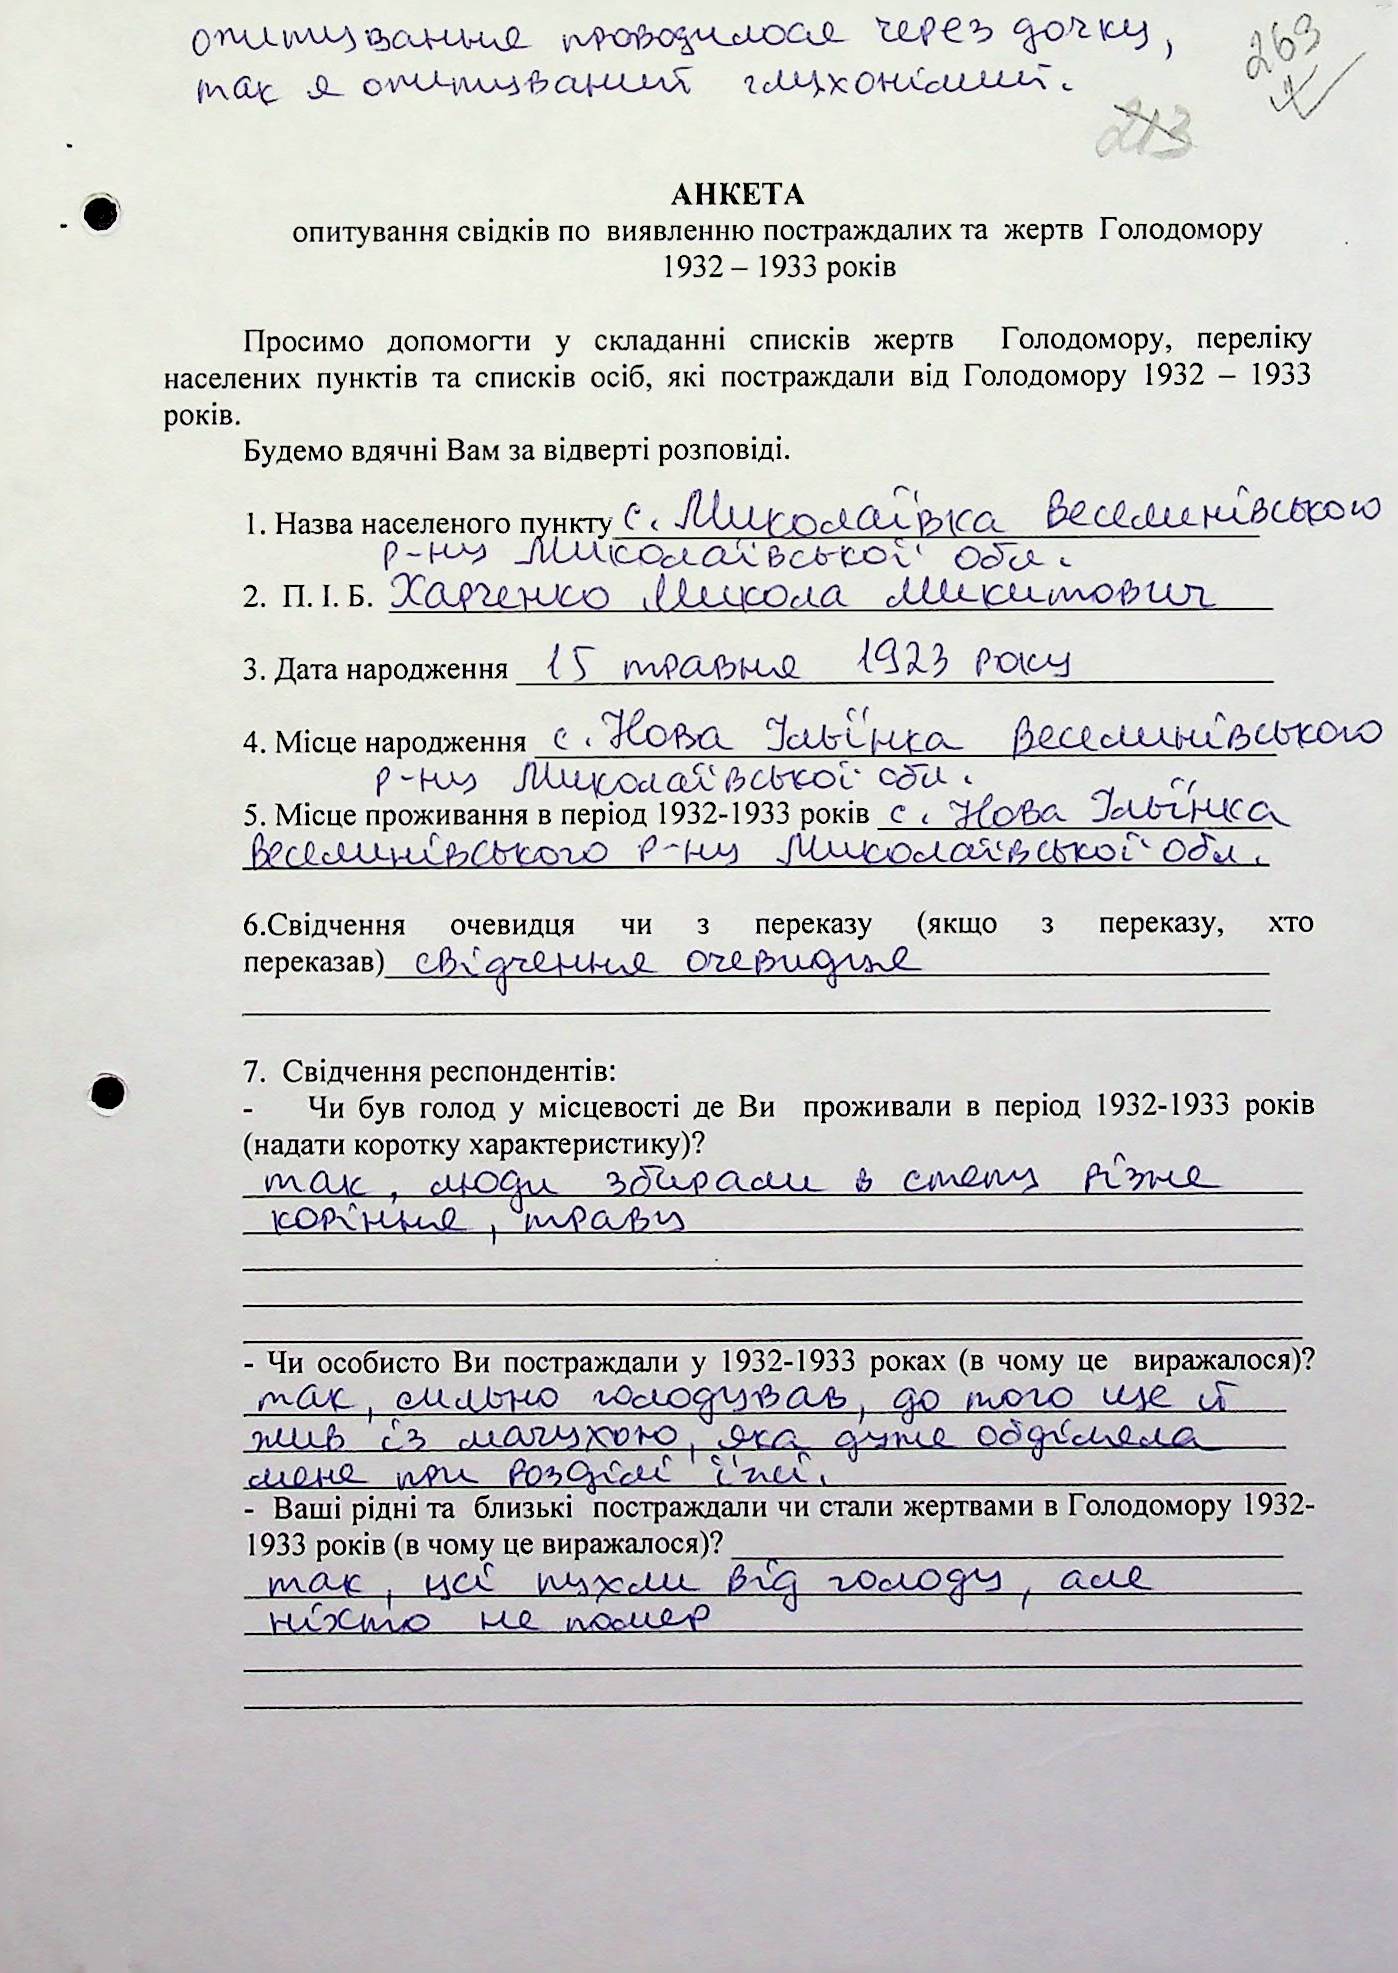 опитування проводилося через дочку,
так я опитуваний глухонімий.
263
213
АНКЕТА
опитування свідків по виявленню постраждалих та жертв Голодомору
1932 – 1933 років
Просимо допомогти у складанні списків жертв Голодомору, переліку
населених пунктів та списків осіб, які постраждали від Голодомору 1932 – 1933
років.
Будемо вдячні Вам за відверті розповіді.
1. Назва населеного пункту с. Миколаївка Веселинівського
р-ну Миколаївської обл.
2. П. І. Б. Харченко Микола Микитович
3. Дата народження 15 травня 1923 року
4. Місце народження с. Нова Ільїнка Веселинівського
р-ну Миколаївської обл.
5. Місце проживання в період 1932-1933 років с. Нова Ільїнка
Веселинівського р-ну Миколаївської обл.
6.Свідчення очевидця чи з переказу (якщо з переказу, хто
переказав) свідчення очевидця
7. Свідчення респондентів:
- Чи був голод у місцевості де Ви проживали в період 1932-1933 років
(надати коротку характеристику)?
так, люди збирали в степу різне
коріння, траву
- Чи особисто Ви постраждали у 1932-1933 роках (в чому це виражалося)?
так, сильно голодував, до того ще й
жив із мачухою, яка дуже обділяла
мене при розділі їжі.
- Ваші рідні та близькі постраждали чи стали жертвами в Голодомору 1932-
1933 років (в чому це виражалося)?
так, усі пухли від голоду, але
ніхто не помер